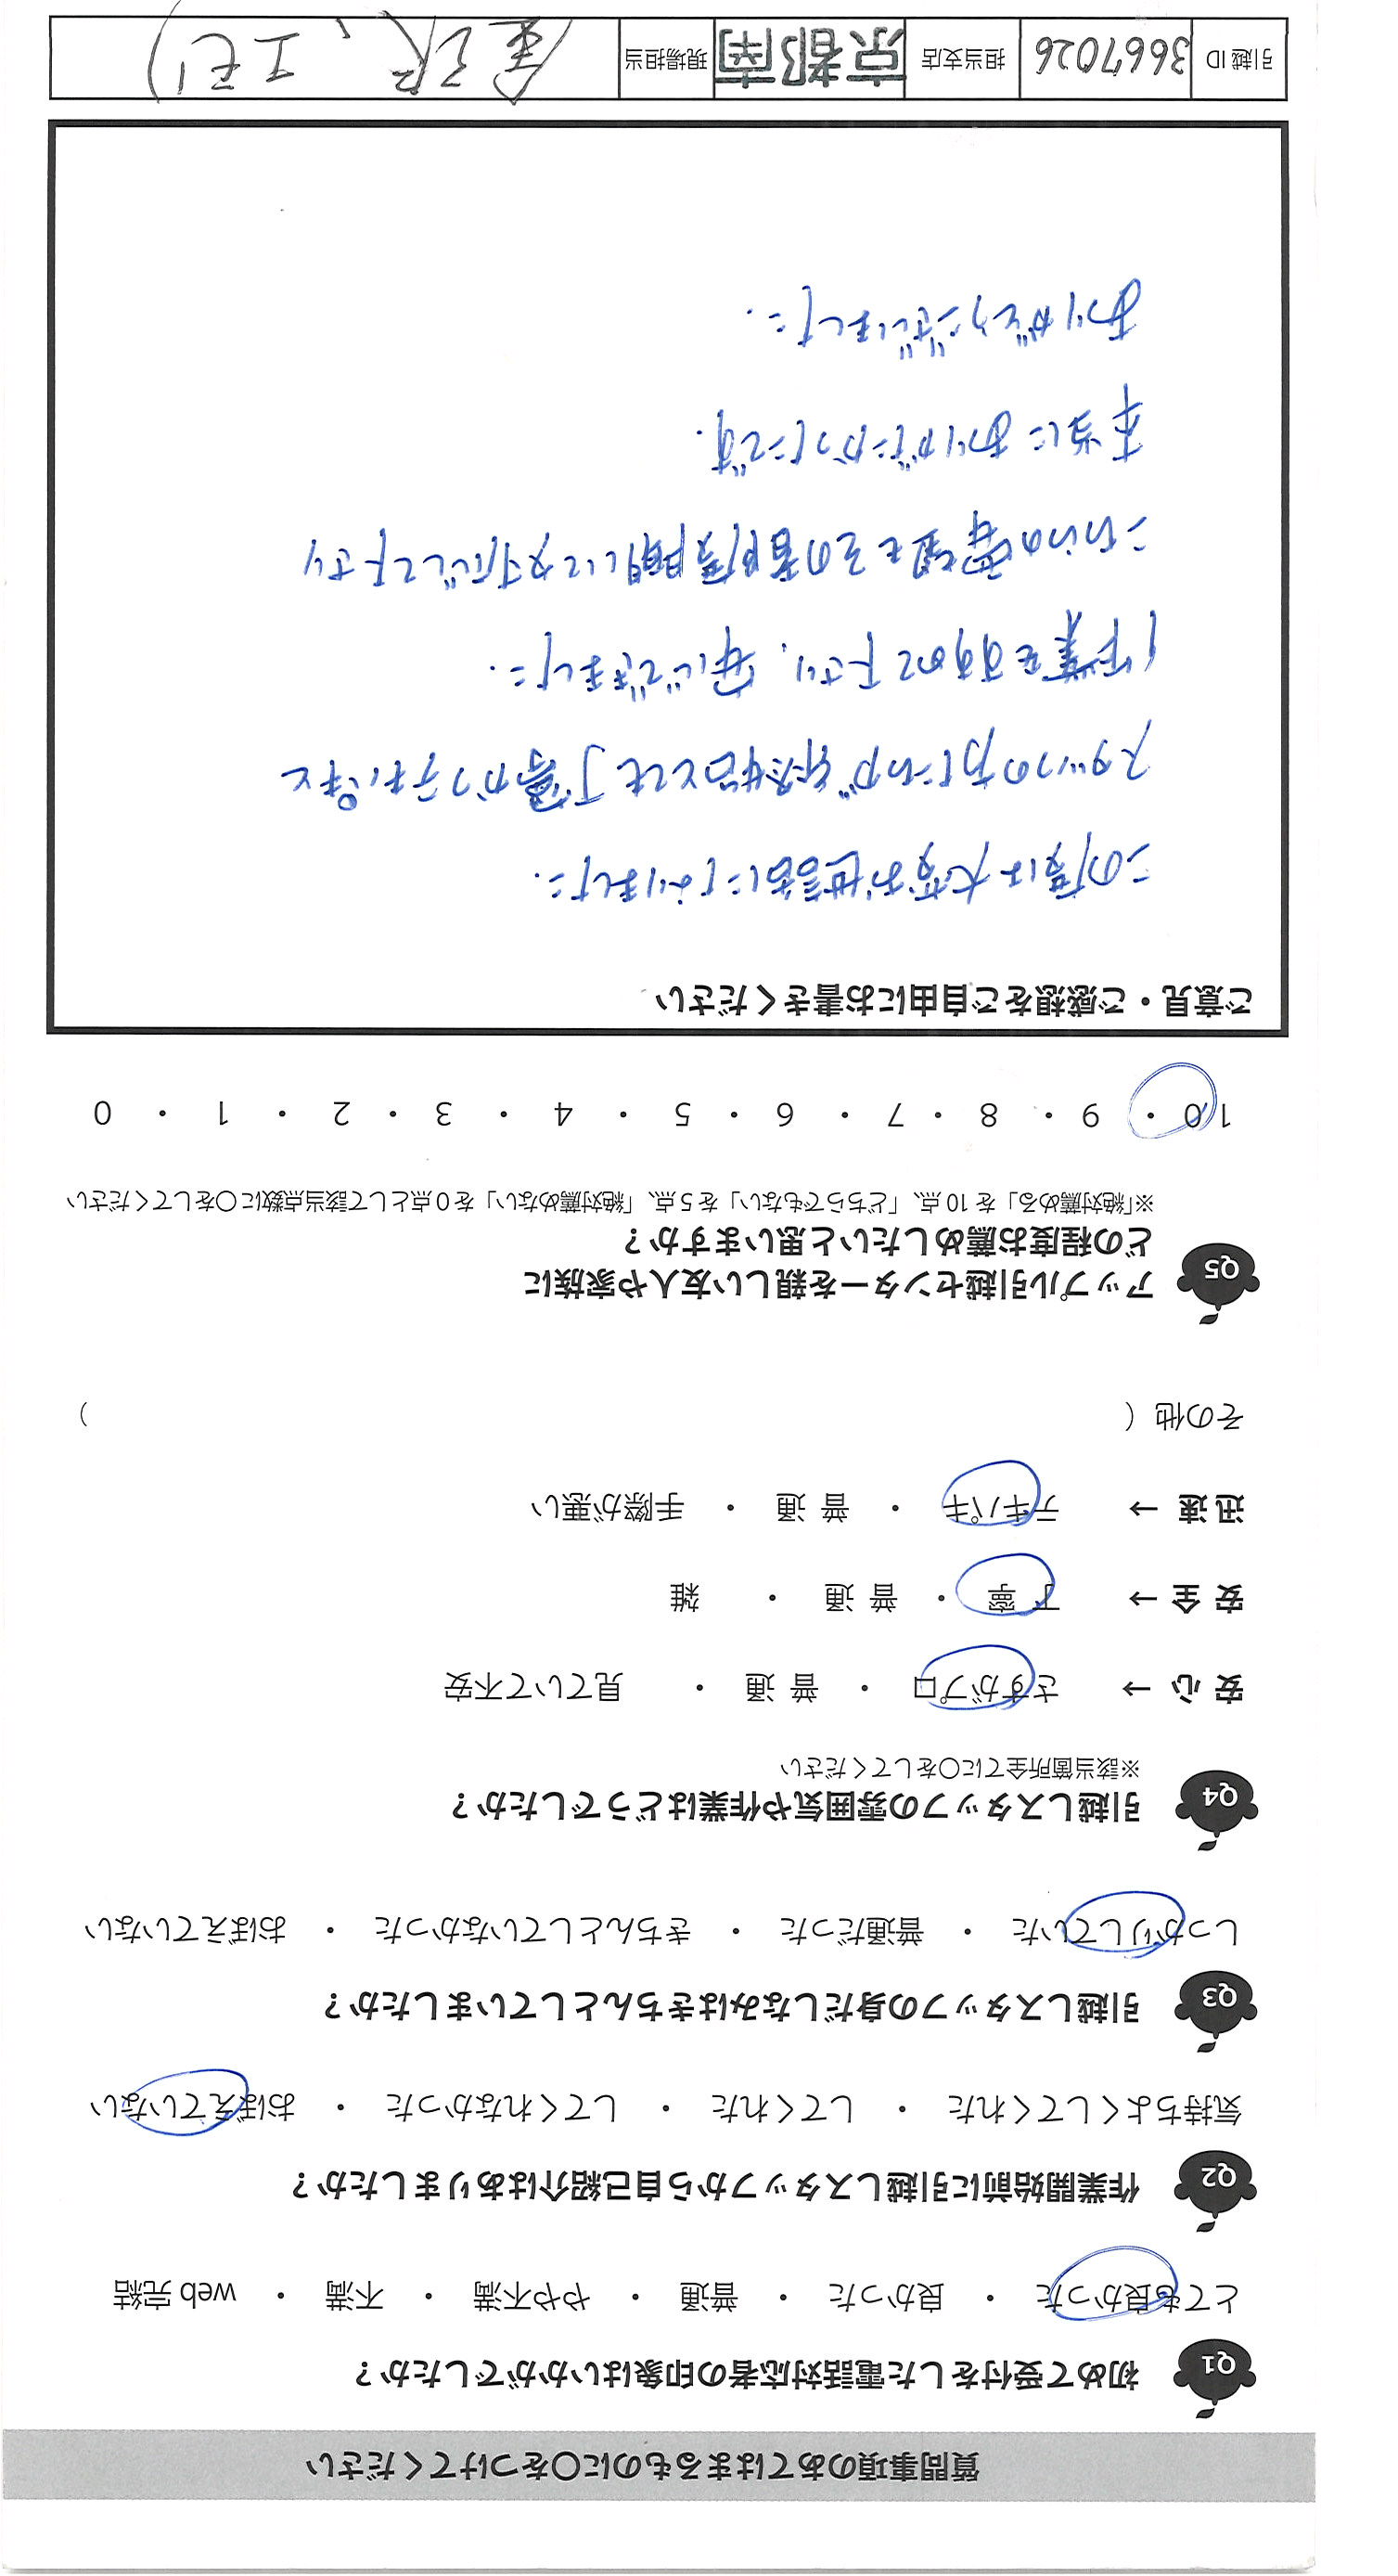 質問事項のあてはまるものに〇をつけてください
Q1 初めて受付をした電話対応者の印象はいかがでしたか？
とても良かった ・ 良かった ・ 普通 ・ やや不満 ・ 不満 ・ web 完結
Q2 作業開始前に引越しスタッフから自己紹介はありましたか？
気持ちよくしてくれた ・ してくれた ・ してくれなかった ・ おぼえていない
Q3 引越しスタッフの身だしなみはきちんとしていましたか？
しっかりしていた ・ 普通だった ・ きちんとしていなかった ・ おぼえていない
Q4 引越しスタッフの雰囲気や作業はどうでしたか？
※該当箇所全てに〇をしてください
安 心 → さすがプロ ・ 普 通 ・ 見ていて不安
安 全 → 丁 寧 ・ 普 通 ・ 雑
迅 速 → テキパキ ・ 普 通 ・ 手際が悪い
その他（ ）
Q5 アップル引越センターを親しい友人や家族に
どの程度お薦めしたいと思いますか？
※「絶対薦める」を 10 点、「どちらでもない」を 5 点、「絶対薦めない」を 0 点として該当点数に〇をしてください
10 ・ 9 ・ 8 ・ 7 ・ 6 ・ 5 ・ 4 ・ 3 ・ 2 ・ 1 ・ 0
ご意見・ご感想をご自由にお書きください
この度は大変お世話になりました.
スタッフの方たちが終始とても丁寧かつテキパキと
作業をすすめて下さり、安心できました.
こちらの要望もその都度聞いて対応して下さり
本当にありがたかったです.
ありがとうございました.
引越 ID 3667026 担当支店 京都南 現場担当